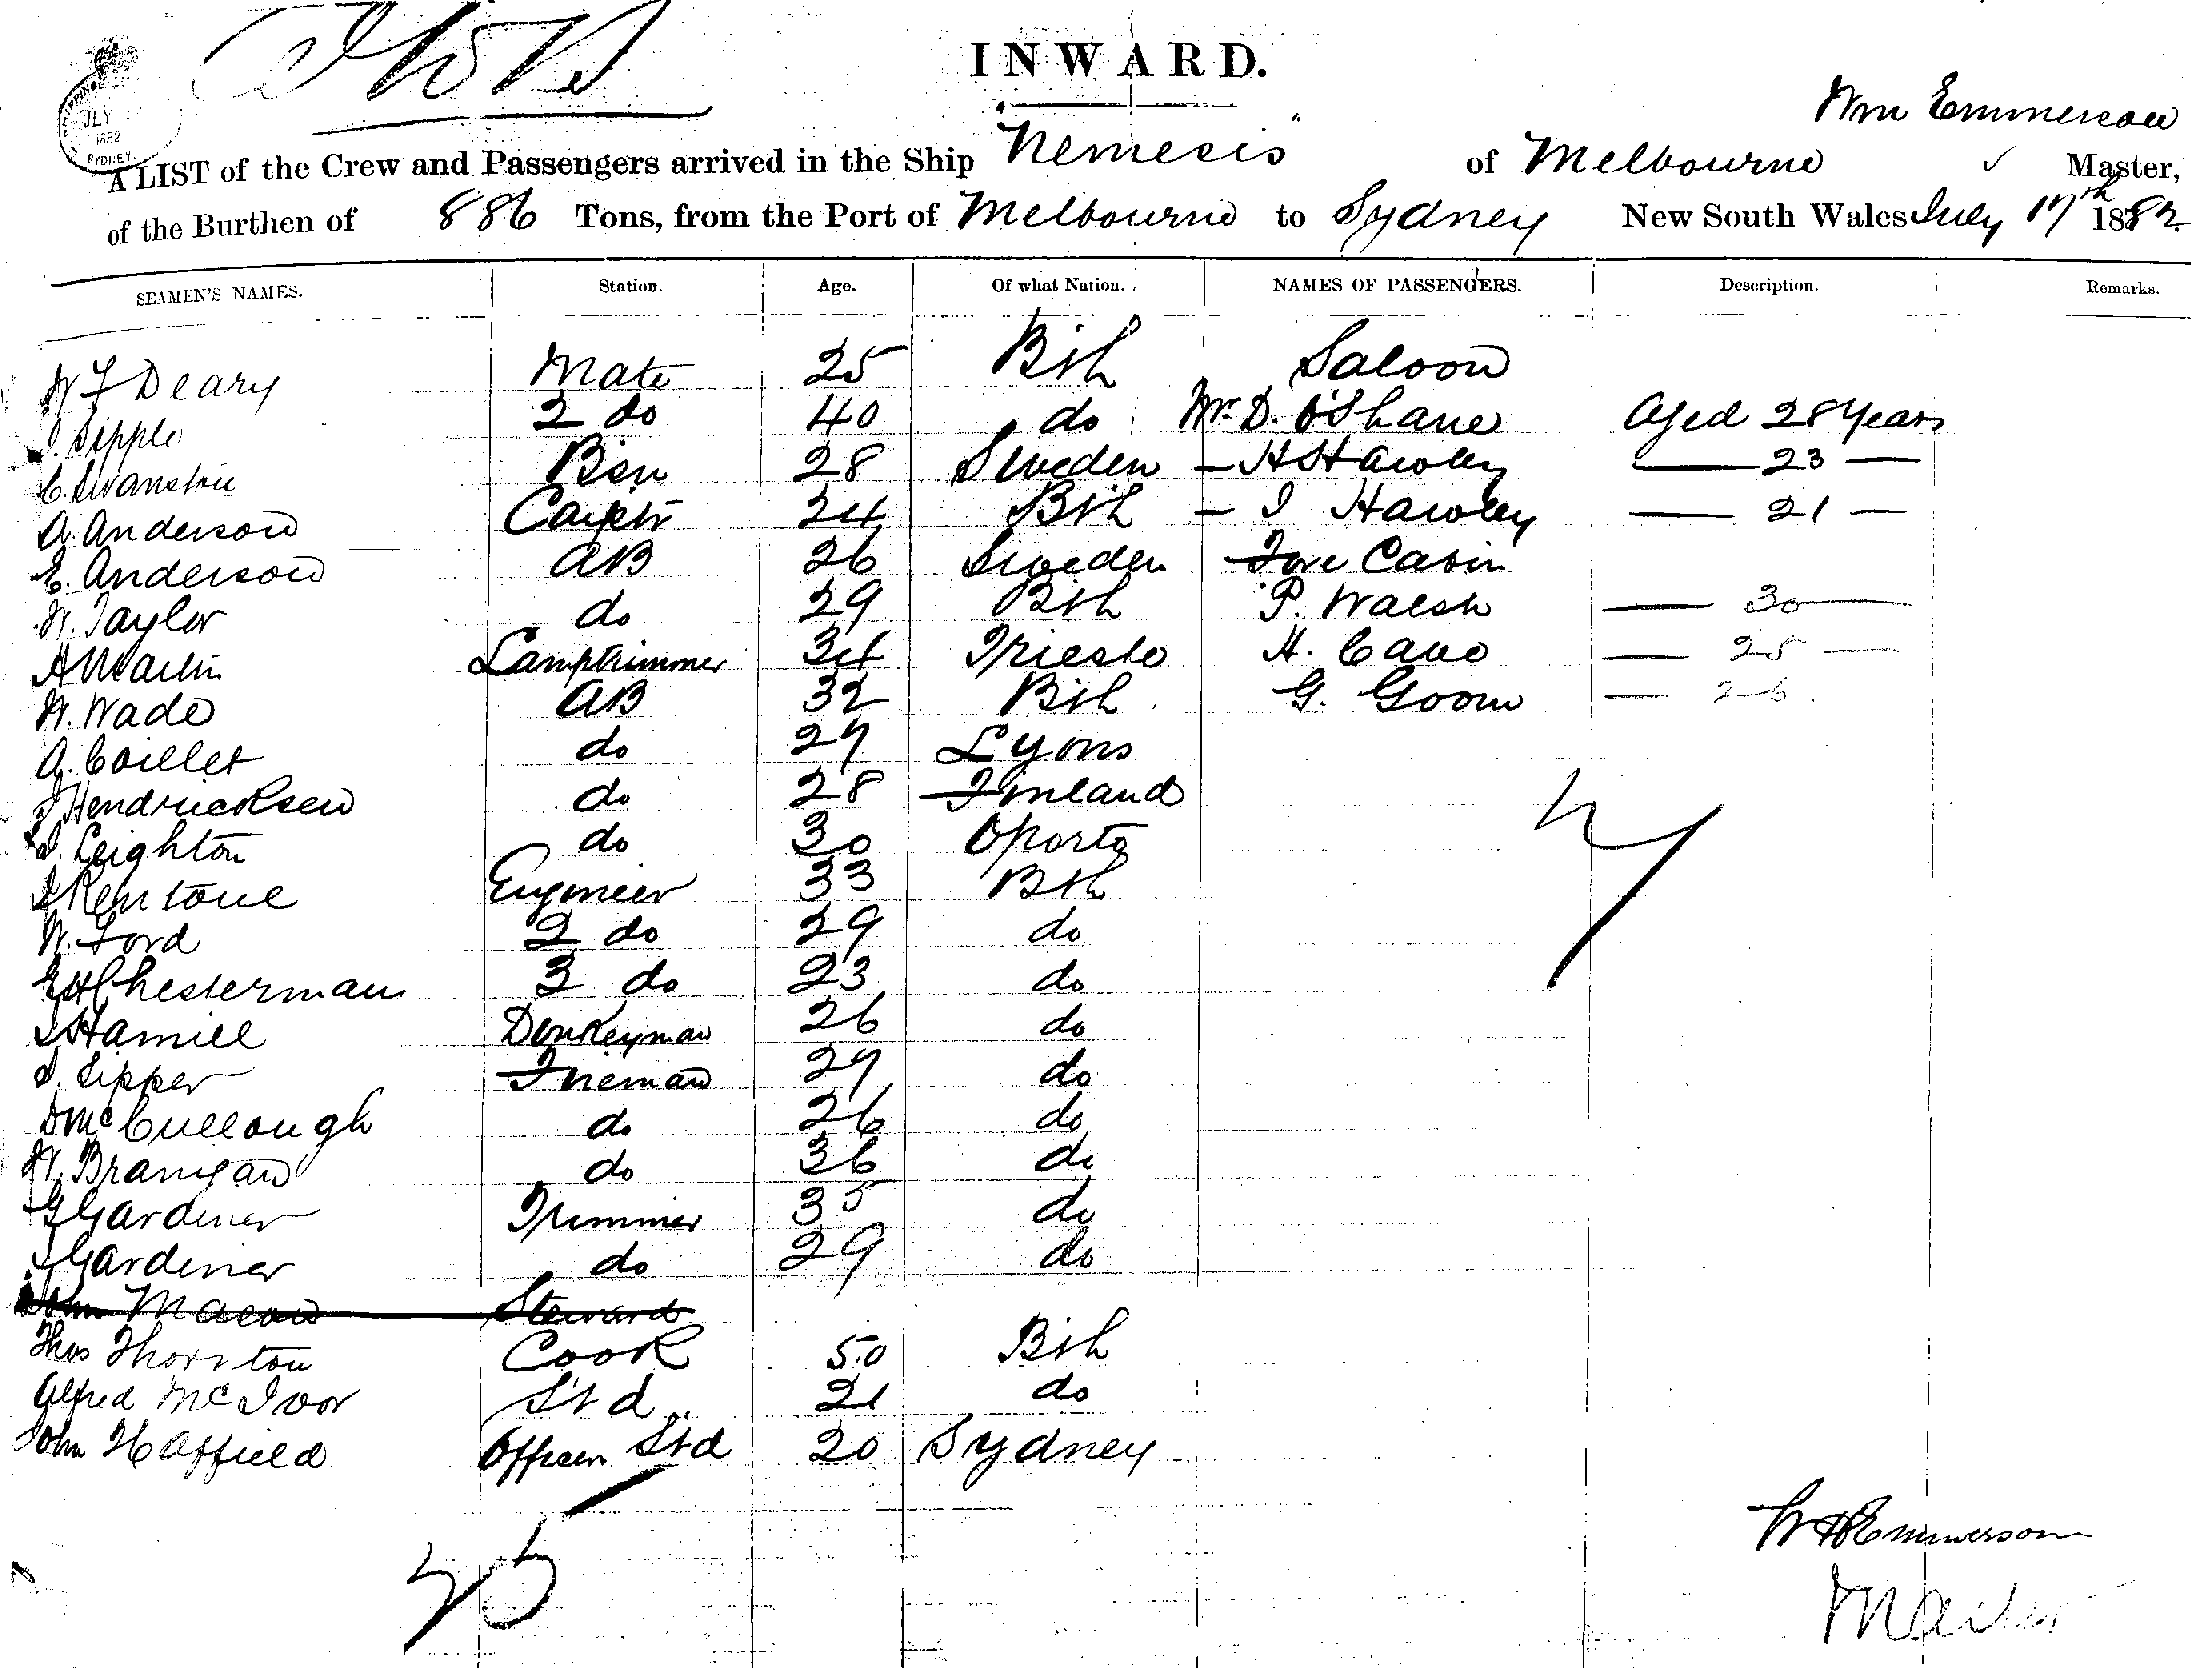 INWARD.
JLY
1882
SYDNEY
Wm Emmerson
A LIST of the Crew and Passengers arrived in the Ship "Nemesis" of Melbourne Master,
of the Burthen of 886 Tons, from the Port of Melbourne to Sydney New South Wales July 17th 1882
SEAMEN'S NAMES. Station. Age. Of what Nation. NAMES OF PASSENGERS. Description. Remarks.
W F Deary Mate 25 Bsh Saloon
J. Sipple 2 do 40 do Mr. D. O'Shane Aged 28 Years
C. Swanston Bsn 28 Sweden — H Hawley — 23 —
A. Anderson Carptr 24 Bsh — J Hawley — 21 —
E. Anderson AB 26 Sweden Fore Cabin
W. Taylor do 29 Bsh P. Walsh — 30 —
A Martin Lamptrimmer 34 Trieste H. Cave — 25 —
W. Wade AB 32 Bsh G. Goom — 26
A. Caillet do 27 Lyons
J Hendricksen do 28 Finland
J. Leighton do 30 Oporto
Engineer 33 Bsh
W. Ford 2 do 29 do
E H Chesterman 3 do 23 do
J Hamill Donkeyman 26 do
J. Sipper Fireman 27 do
D McCullough do 26 do
W. Branigan do 36 do
G Gardiner Trimmer 35 do
J Gardiner do 29 do
John Macon Steward
Thos Thornton Cook 50 Bsh
Alfred McIvor Std 21 do
John Haffield Officers Std 20 Sydney
W H Emmerson
Master